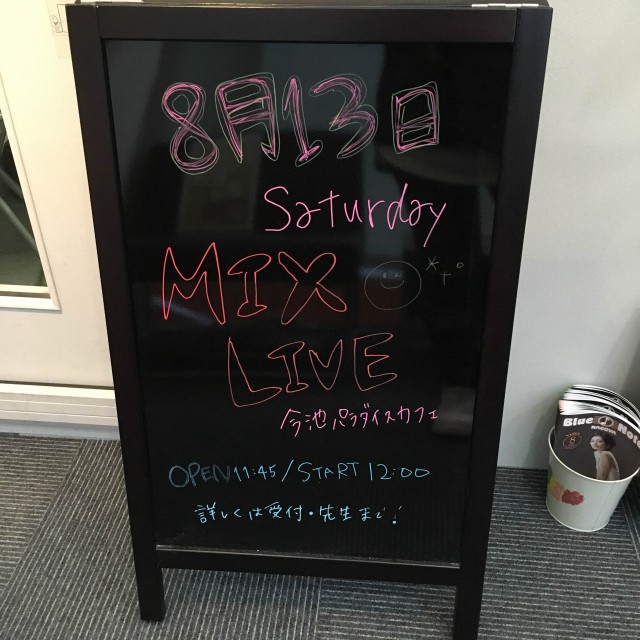 8月13日
Saturday
MIX
LIVE
今池パラダイスカフェ
OPEN 11:45 / START 12:00
詳しくは受付・先生まで!
Blue Note